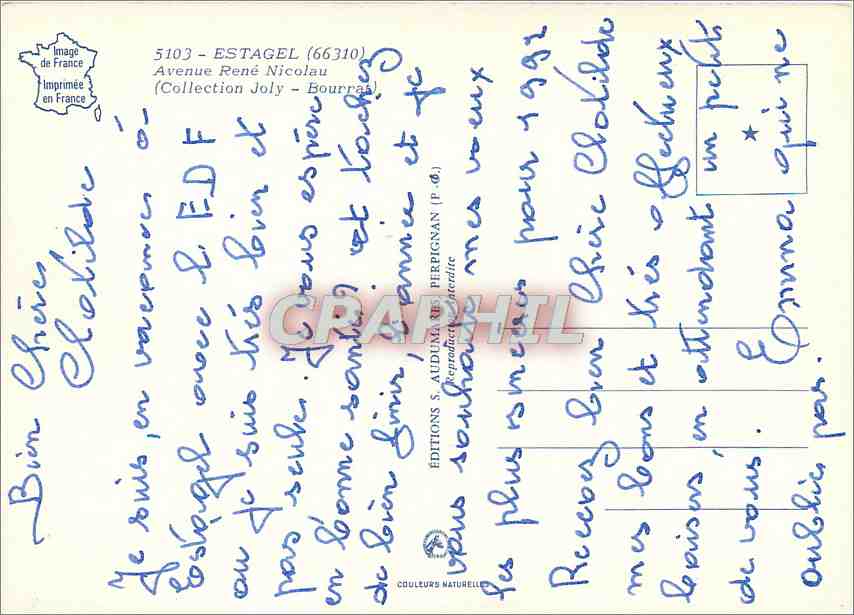 Image
de France
Imprimée
en France
5103 - ESTAGEL (66310)
Avenue René Nicolau
(Collection Joly - Bourrat)
Bien Chères
Clotilde
Je suis, en vacances à
Estagel avec l'EDF
ou je suis très bien et
pas seule. Je vous espère
en bonne santé, et tâchez
de bien finir, l'année et je
vous souhaite mes vœux
les plus sincères pour 1992
Recevez bien chère Clotilde
mes bons et très affectueux
baisers, en attendant un petit
de vous. Emma qui ne
oublie pas.
ÉDITIONS S. AUDUMARES, PERPIGNAN (P.-O.)
Reproduction interdite
COULEURS NATURELLES
CRAPHIL